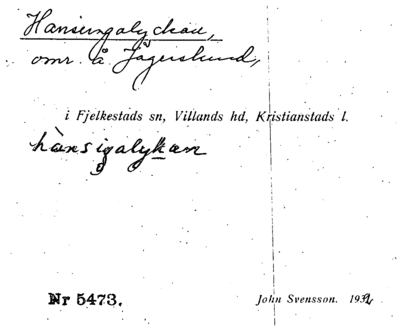 Hansingalyckan,
omr. å Jägerslund,
i Fjelkestads sn, Villands hd, Kristianstads l.
hànsigalykan
Nr 5473.
John Svensson. 1932